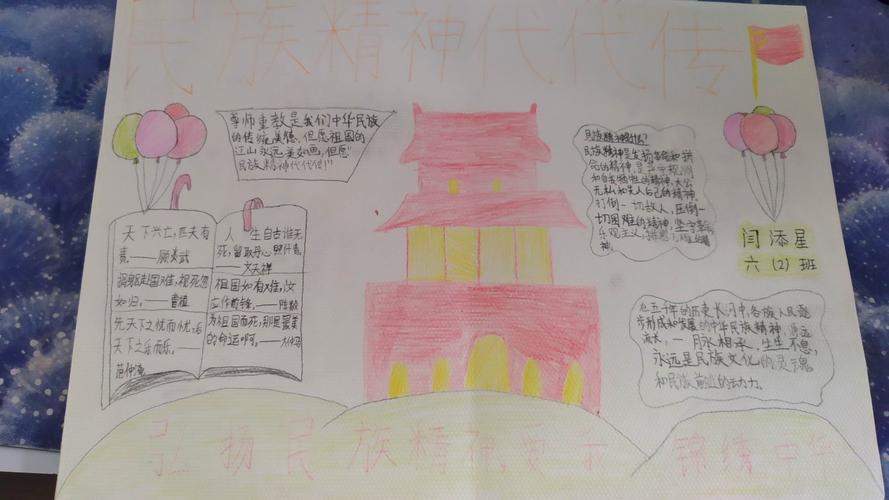 民族精神代代传
尊师重教是我们中华民族
的传统美德,但愿祖国的
江山永远美如画,但愿"
民族精神代代传!"
天下兴亡,匹夫有
责。——顾炎武
捐躯赴国难,视死忽
如归。——曹植
先天下之忧而忧,后
天下之乐而乐。——
范仲淹
人生自古谁无
死,留取丹心照汗青。
——文天祥
祖国如有难,汝
应作前锋。——陈毅
为祖国而死,那是最美
的命运啊。——大仲马
民族精神是什么?
民族精神是发扬革命和拼
命的精神,是
和自我牺牲的精神,大公
无私和先人后己的精神,
打倒一切敌人,压倒一
切困难的精神,坚守革命
乐观主义,排除万难
神。
闫添星
六(2)班
在五千年的历史长河中,各族人民逐
步形成和发展的中华民族精神,源远
流长,一脉相承,生生不息,
永远是民族文化的灵魂
和民族前业的动力。
弘扬民族精神,爱我锦绣中华